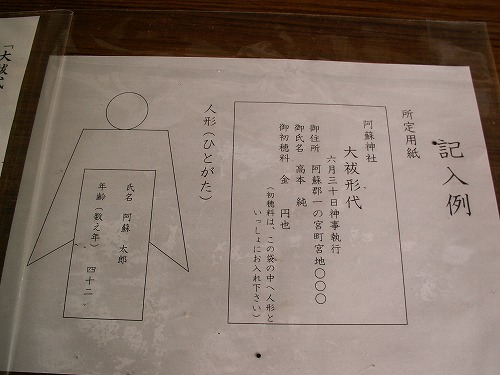 記入例
所定用紙
阿蘇神社
大祓形代
六月三十日神事執行
御住所 阿蘇郡一の宮町宮地〇〇〇
御氏名 高本 純
御初穂料 金 円也
(初穂料は、この袋の中へ人形と
いっしょにお入れ下さい)
人形(ひとがた)
氏名 阿蘇 太郎
年齢(数え年) 四十二
「大祓式